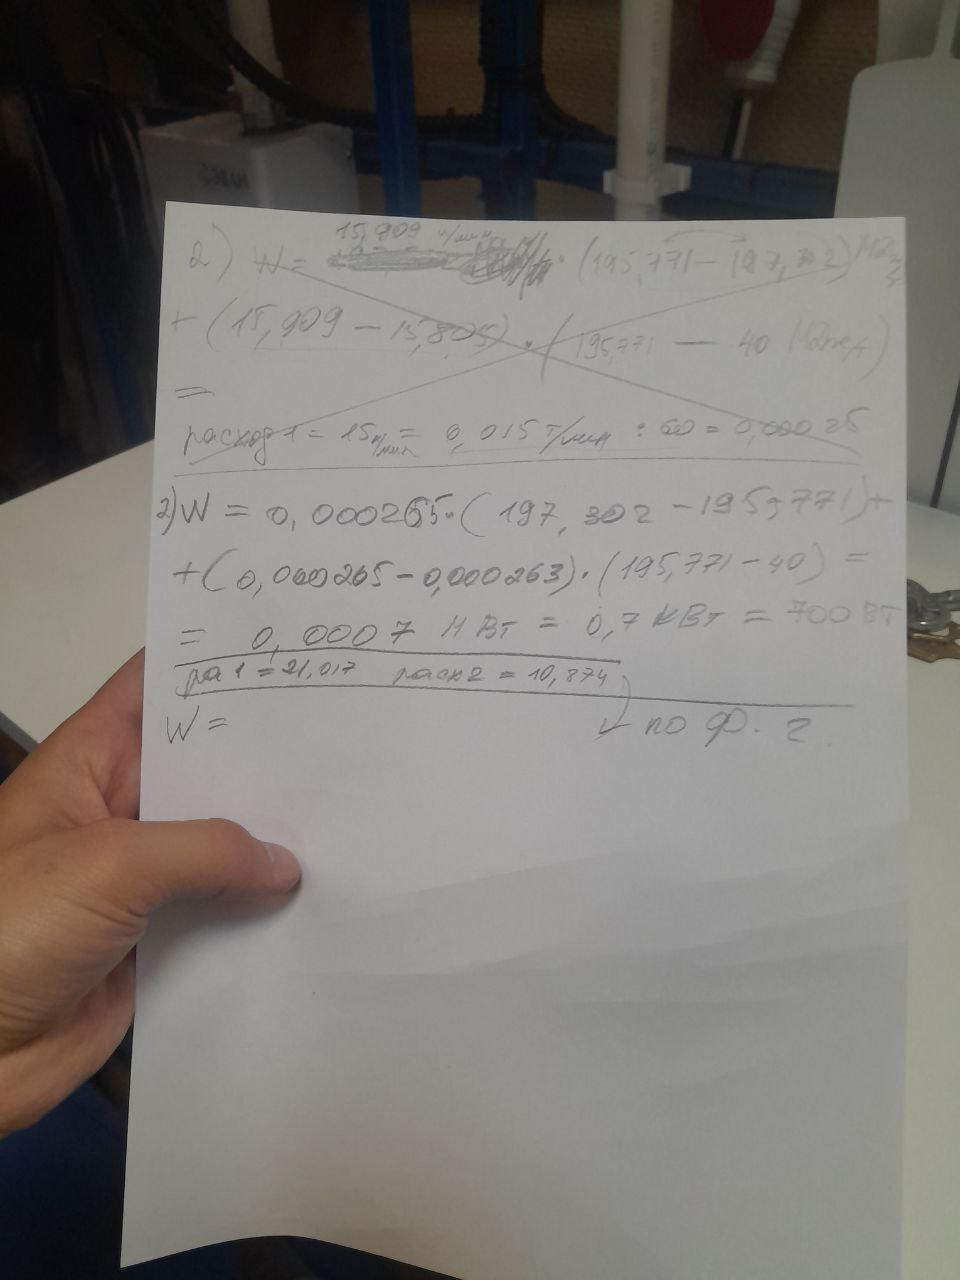 2) W = 15,909 л/мин · (195,771 – 197,302)
+ (15,909 – 15,805) · (195,771 — 40
=
расход 1 = 15 л/мин = 0,015 т/мин : 60 = 0,00025
2) W = 0,000265 · (197,302 – 195,771) +
+ (0,000265 – 0,000263) · (195,771 – 40) =
= 0,0007 МВт = 0,7 кВт = 700 Вт
ра 1 = 21,017 расх 2 = 10,874
W = по ф. 2.